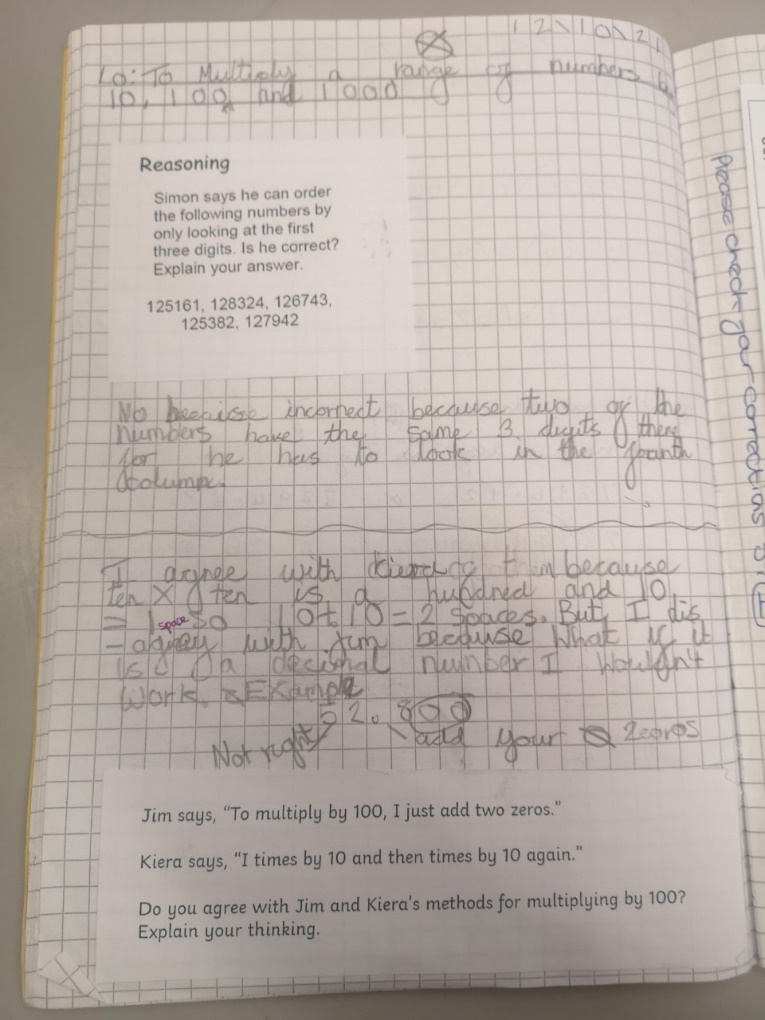 12\10\21
Lo: To Multiply a range of numbers by
10, 100 and 1000
Reasoning
Simon says he can order
the following numbers by
only looking at the first
three digits. Is he correct?
Explain your answer.
125161, 128324, 126743,
125382, 127942
No because incorrect because two of the
numbers have the same 3 digits there
for he has to look in the founth
column.
I agree with Kiera because
ten X ten is a hundred and 10
= 1 space so 10+10=2 spaces. But I dis
-agray with Jim because what if it
is a decimal number I wouldn't
work. Example
52.800
Not right add your 2 zeros
Jim says, “To multiply by 100, I just add two zeros.”
Kiera says, “I times by 10 and then times by 10 again.”
Do you agree with Jim and Kiera's methods for multiplying by 100?
Explain your thinking.
Please check your corrections